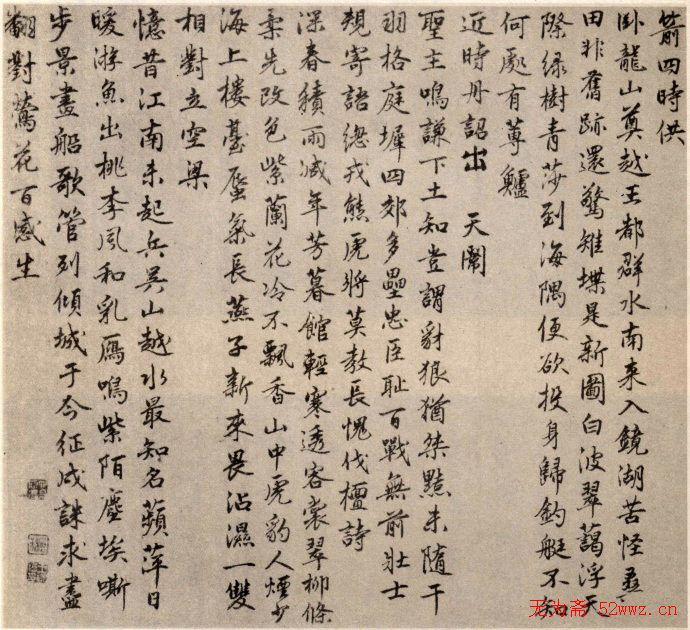 箭四時供
卧龍山奠越王都群水南来入鏡湖苦怪桑
田非舊跡還驚雉堞是新圖白波翠藹浮天
際緑樹青莎到海隅便欲投身歸釣艇不知
何處有蓴鱸
近時丹詔出 天闕
聖主鳴謙下土知豈謂豺狼猶桀黠未隨干
羽格庭墀四郊多壘忠臣耻百戰無前壮士
規寄語總戎熊虎將莫教長愧伐檀詩
深春積雨减年芳暮館輕寒透客裳翠柳條
柔先改色紫蘭花冷不飄香山中虎豹人煙少
海上樓臺蜃氣長燕子新来畏沾濕一雙
相對立空梁
憶昔江南未起兵吳山越水最知名蘋萍日
暖游魚出桃李風和乳鴈鳴紫陌塵埃嘶
步景畫船歌管列傾城于今征戍誅求盡
翻對鶯花百感生
无为斋·52wwz.cn